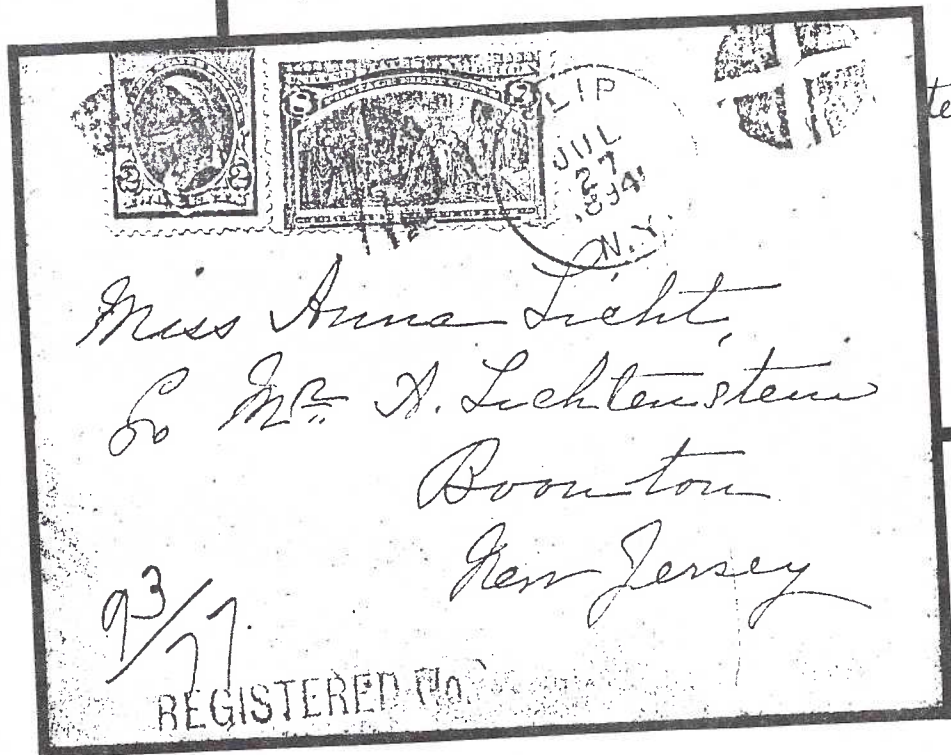 2 2
8
LIP
JUL
27
1894
N.Y.
te
Miss Anna Licht,
Co Mr. A. Lichtenstein
Boonton
New Jersey
93/77
REGISTERED No.